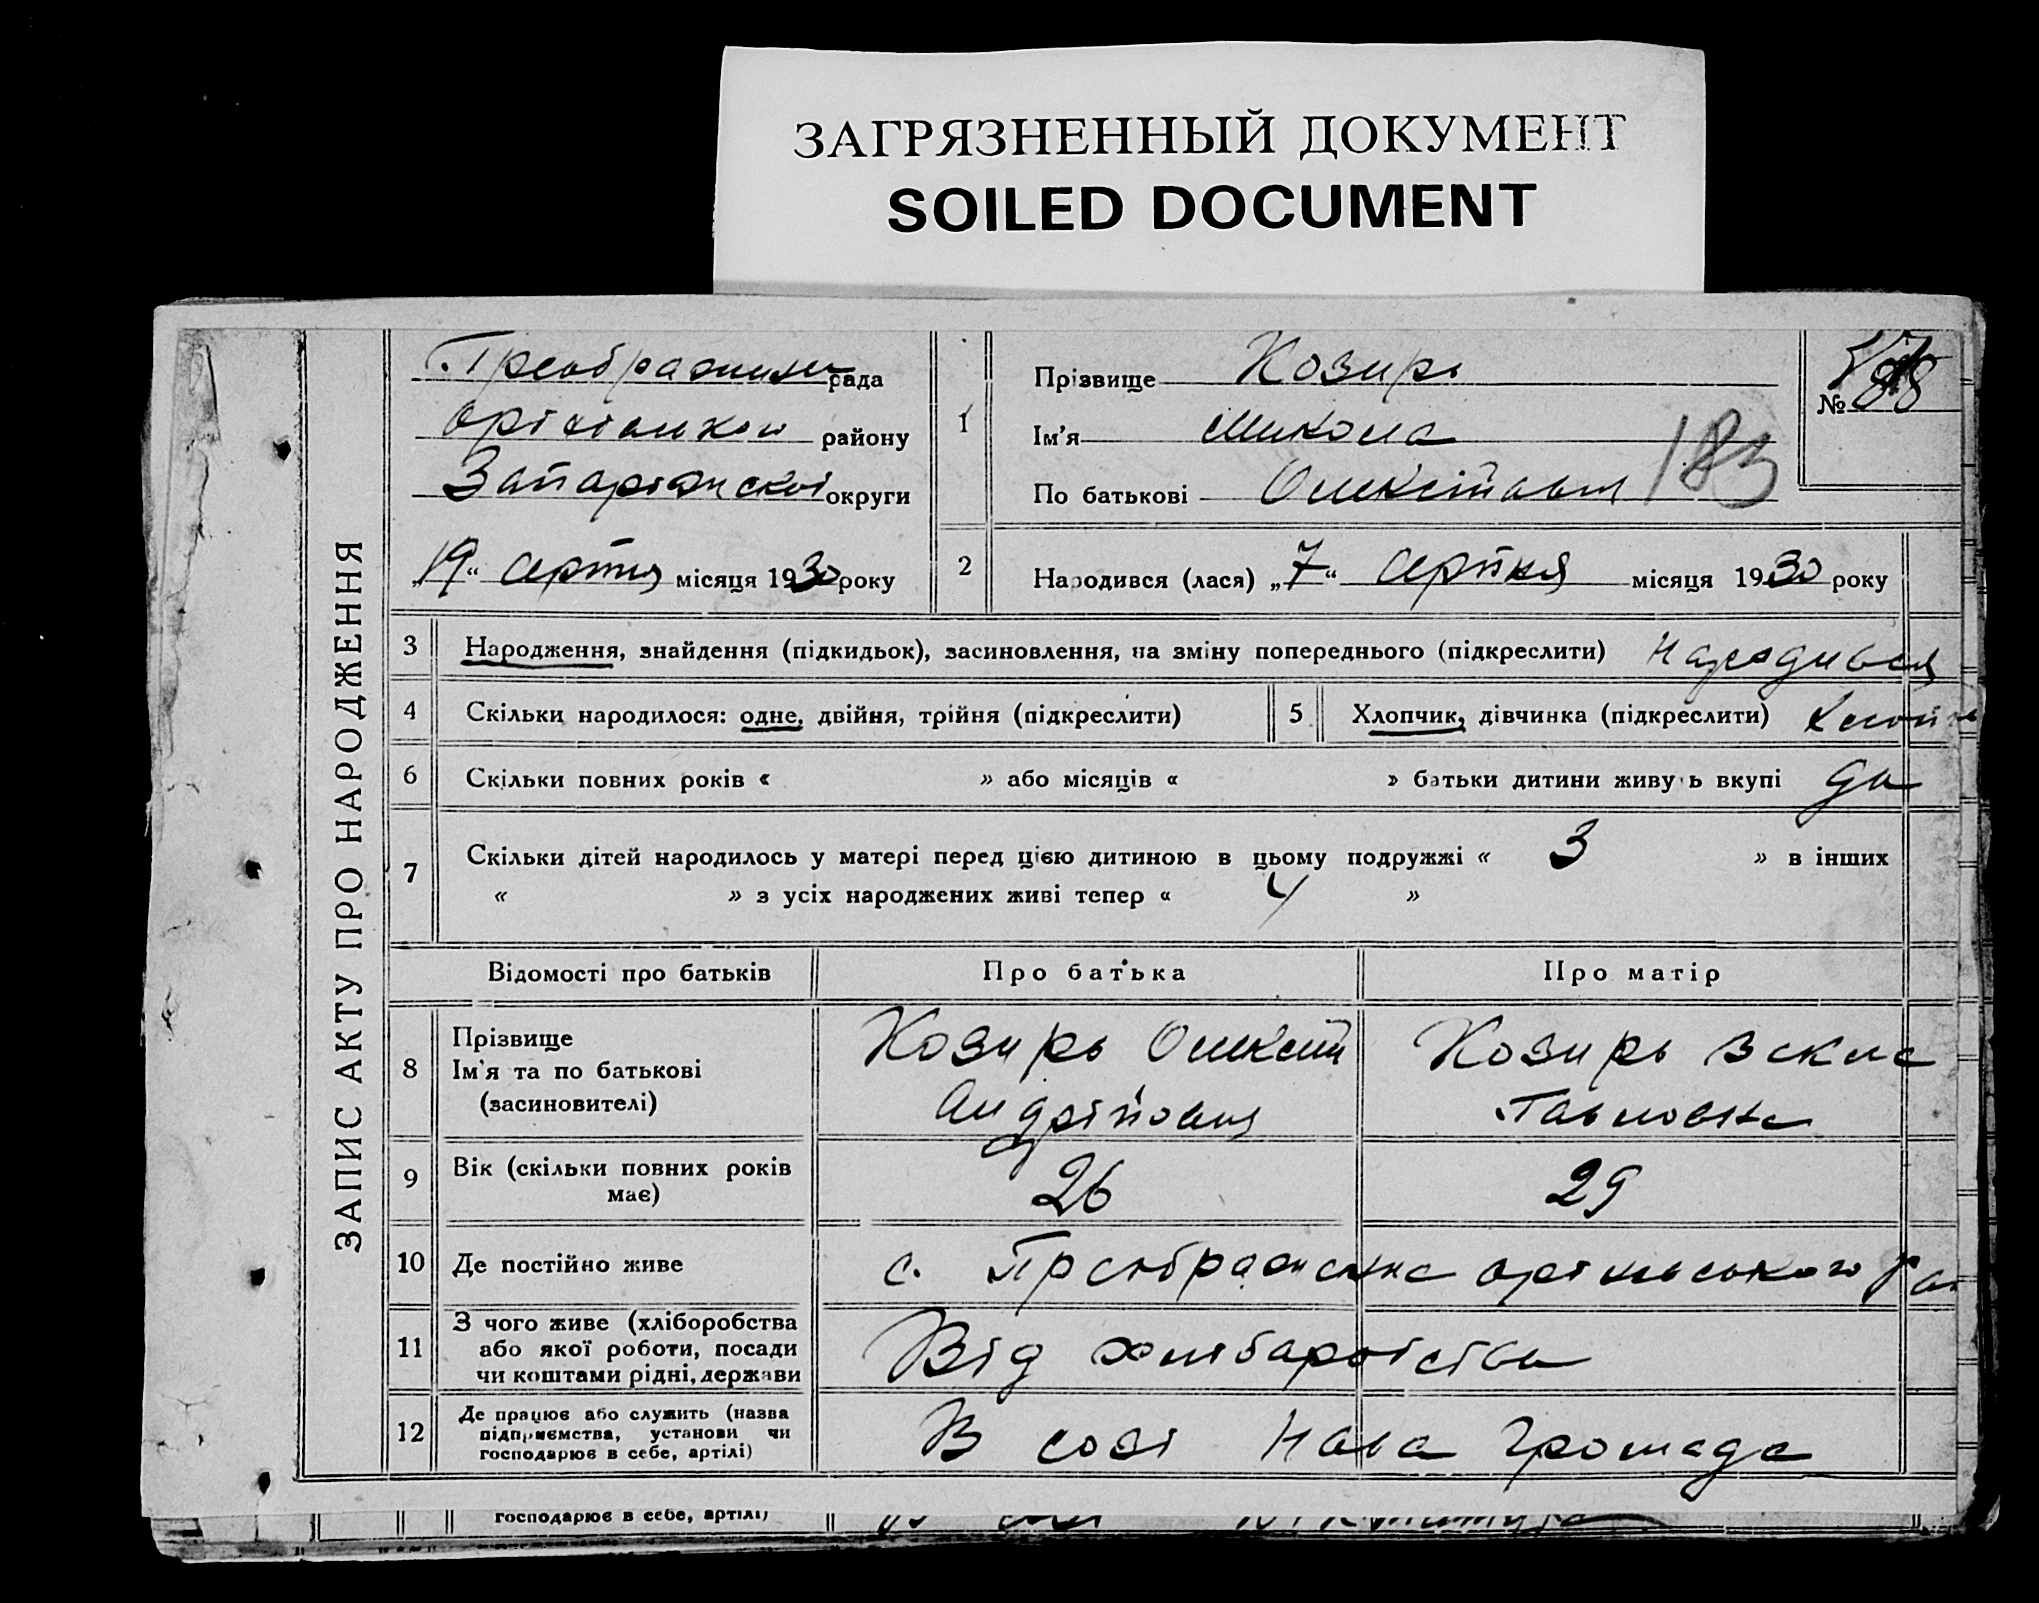 ЗАГРЯЗНЕННЫЙ ДОКУМЕНТ
SOILED DOCUMENT
ЗАПИС АКТУ ПРО НАРОДЖЕННЯ
рада
району
округи
„19“ серпня місяця 1930 року
1
Прізвище Козирь
Ім'я Микола
По батькові
183
№ 88
2
Народився (лася) „7“ серпня місяця 1930 року
3 Народження, знайдення (підкидьок), засиновлення, на зміну попереднього (підкреслити) Народився
4 Скільки народилося: одне, двійня, трійня (підкреслити)
5 Хлопчик, дівчинка (підкреслити)
6 Скільки повних років « » або місяців « » батьки дитини живуть вкупі да
7 Скільки дітей народилось у матері перед цією дитиною в цьому подружжі « 3 » в інших
« » з усіх народжених живі тепер « 4 »
Відомості про батьків Про батька Про матір
8 Прізвище
Ім'я та по батькові
(засиновителі)
Козирь Олексій
Андрійович
Козирь
Павловна
9 Вік (скільки повних років
має)
26 29
10 Де постійно живе
с.
11 З чого живе (хліборобства
або якої роботи, посади
чи коштами рідні, держави
Від
12 Де працює або служить (назва
підприємства, установи чи
господарює в себе, артілі)
В созі Нова громада
господарює в себе, артілі)